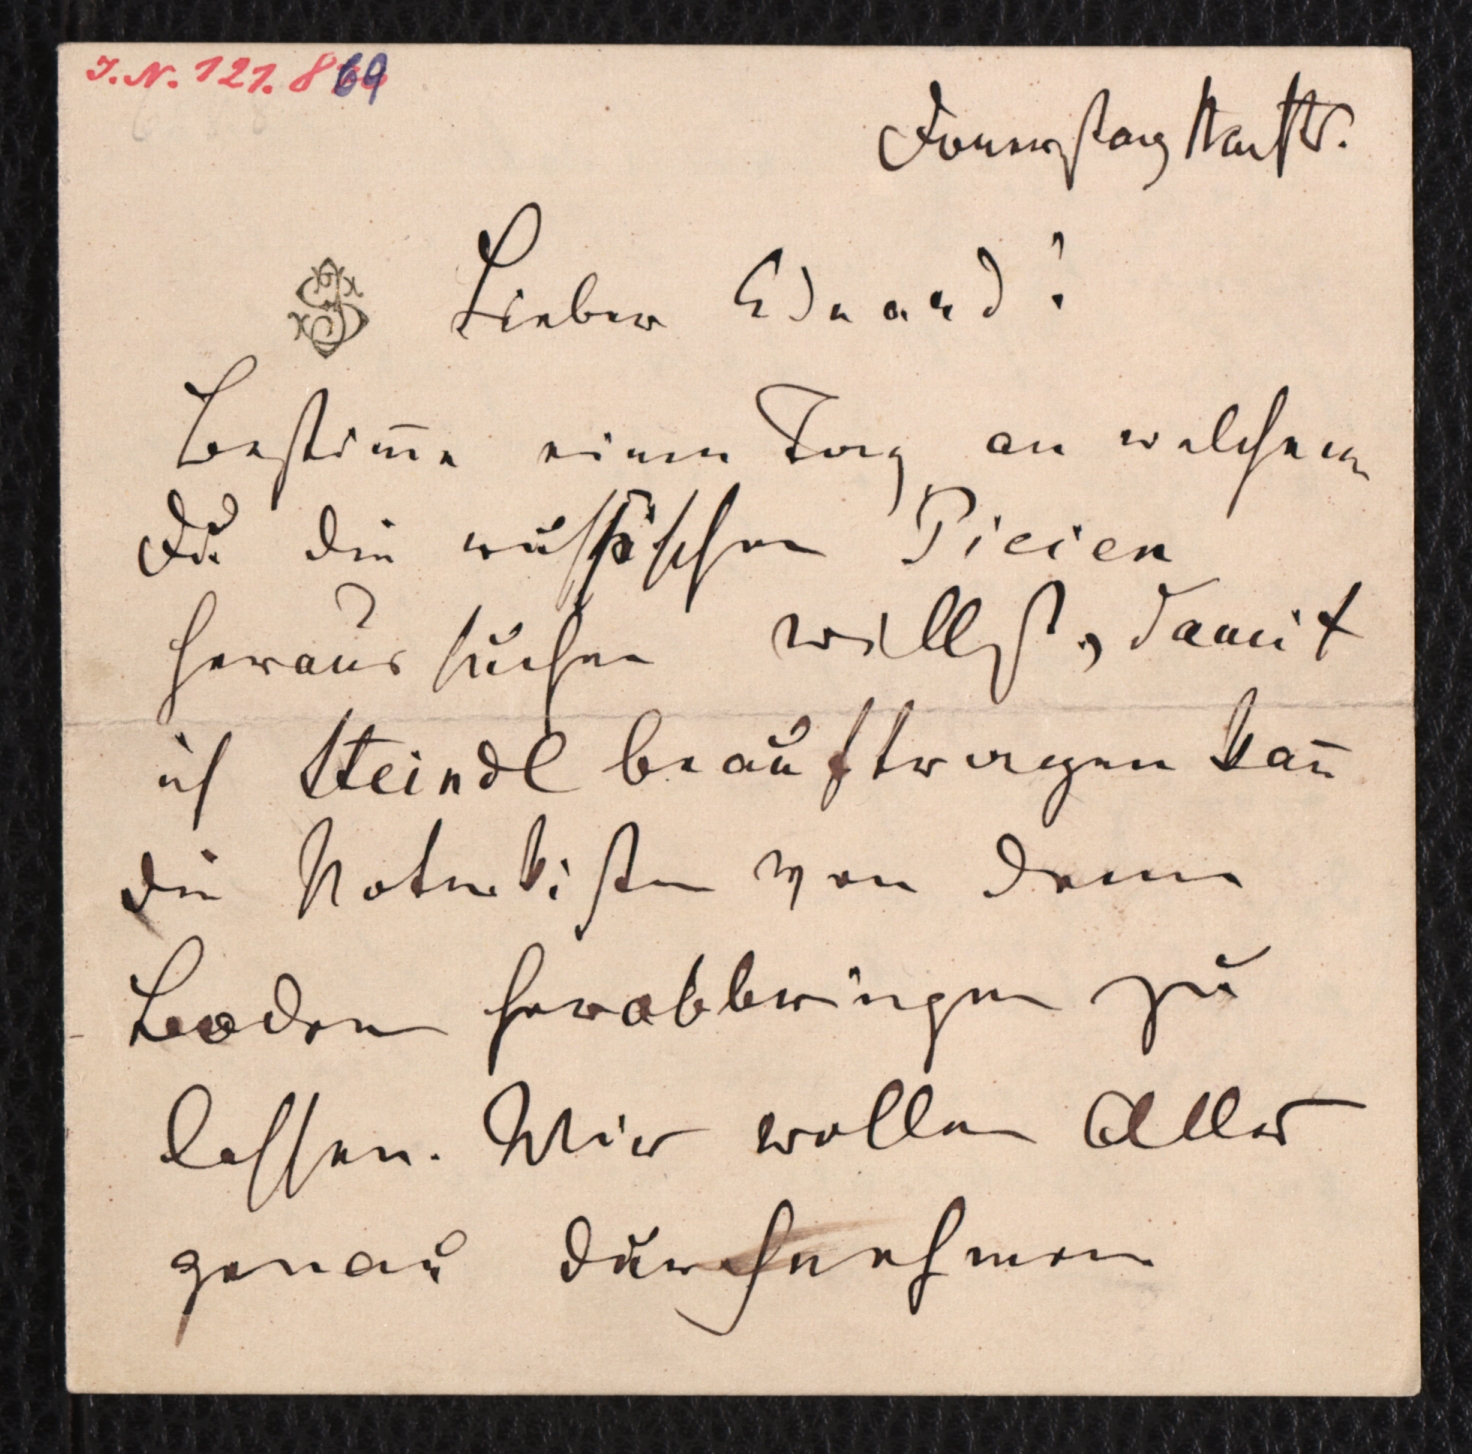 J.N. 121.869
Donnerstag Nachts.
Lieber Eduard!
Bestim̅e einen Tag an welchem
Du die russischen Piecien
heraussuchen willst, damit
ich Steindl beauftragen kan̅
die Notenkisten von dem
Boden herabbringen zu
lassen. Wir wollen Alles
genau durchnehmen